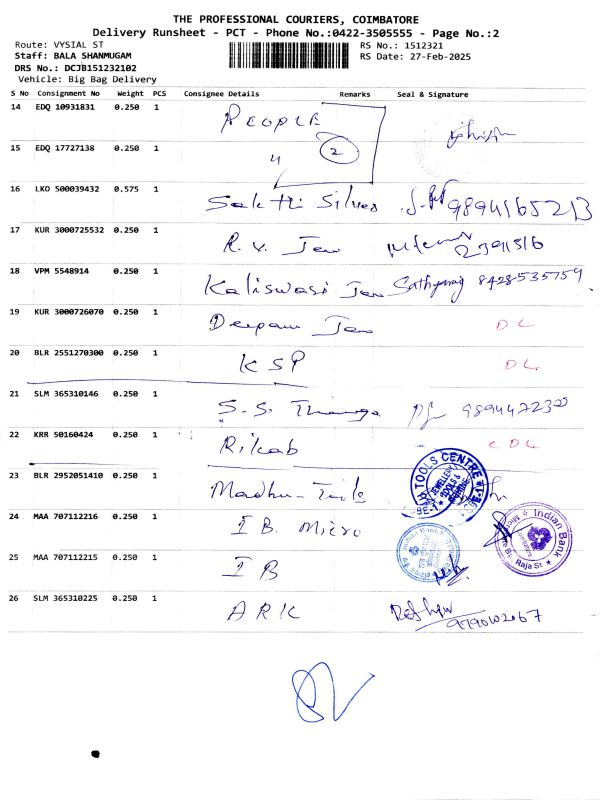 THE PROFESSIONAL COURIERS, COIMBATORE
Delivery Runsheet - PCT - Phone No.:0422-3505555 - Page No.:2
Route: VYSIAL ST
Staff: BALA SHANMUGAM
DRS No.: DCJB151232102
Vehicle: Big Bag Delivery
RS No.: 1512321
RS Date: 27-Feb-2025
S No Consignment No Weight PCS Consignee Details Remarks Seal & Signature
14 EDQ 10931831 0.250 1 PEOPLE
15 EDQ 17727138 0.250 1 " 2
16 LKO 500039432 0.575 1 Sakthi Silver 9894165213
17 KUR 3000725532 0.250 1 R. V. Jew 2391516
18 VPM 5548914 0.250 1 Kaliswasi Jew Sathyaraj 8428535759
19 KUR 3000726070 0.250 1 Deepam Jew DL
20 BLR 2551270300 0.250 1 KSP DL
21 SLM 365310146 0.250 1 S.S. Thanga
22 KRR 50160424 0.250 1 Rikab CDL
23 BLR 2952051410 0.250 1 Madhu-Tools
TOOLS CENTRE
JEWELLERY TOOLS &
24 MAA 707112216 0.250 1 IB. Micro
Indian Bank
Raja St
25 MAA 707112215 0.250 1 IB
Indian Bank
26 SLM 365310225 0.250 1 ARK 9790102067